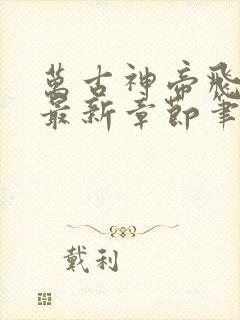 萬古神帝飛
最新章節筆
戴利